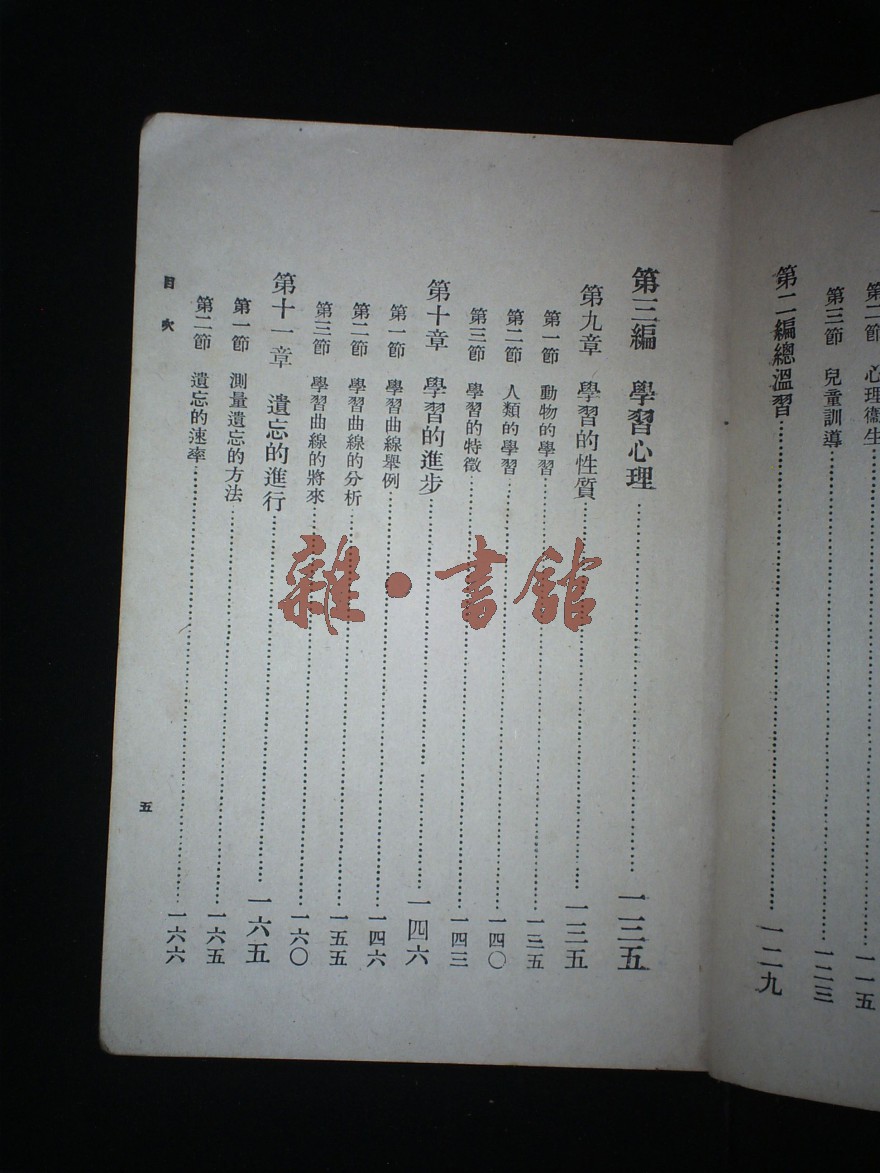 第二節 心理衞生……一一五
第三節 兒童訓導……一二三
第二編總溫習……一二九
第三編 學習心理……一三五
第九章 學習的性質……一三五
第一節 動物的學習……一三五
第二節 人類的學習……一四〇
第三節 學習的特徵……一四三
第十章 學習的進步……一四六
第一節 學習曲線舉例……一四六
第二節 學習曲線的分析……一五五
第三節 學習曲線的將來……一六〇
第十一章 遺忘的進行……一六五
第一節 測量遺忘的方法……一六五
第二節 遺忘的速率……一六六
目次
五
雜·書館